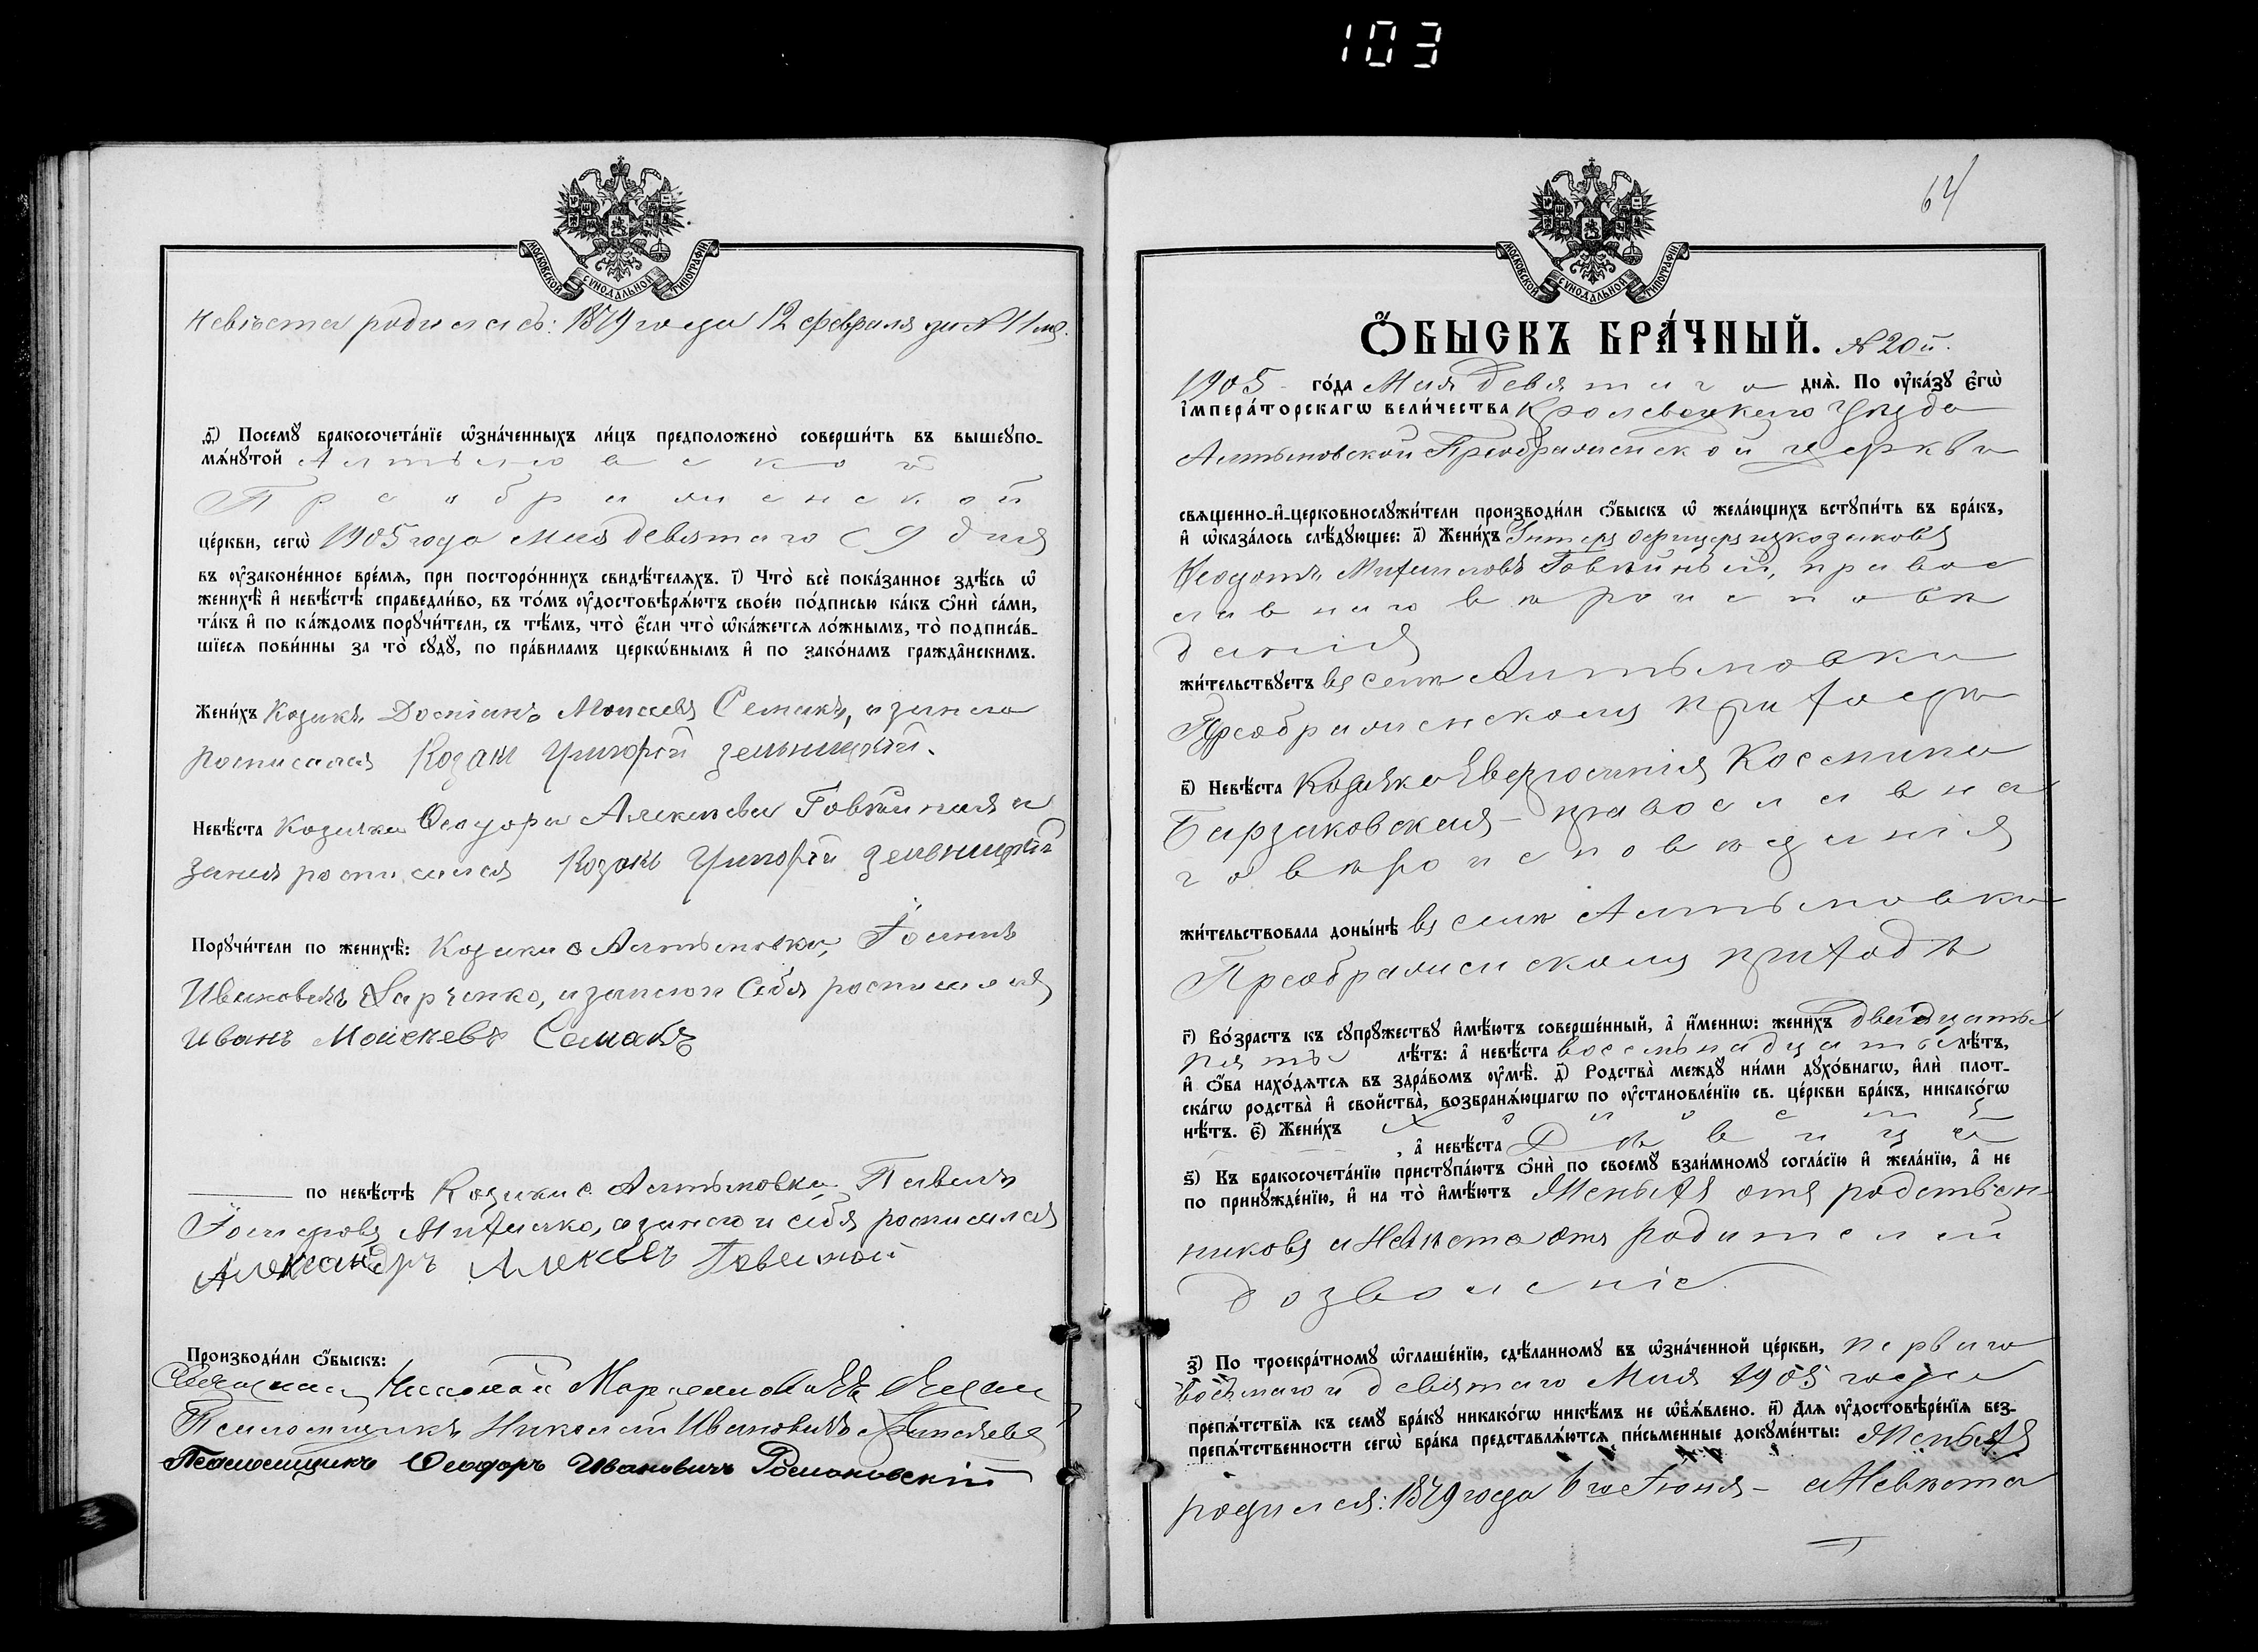 103
МОСКОВСКОЙ СѴНОДАЛЬНОЙ ТИПОГРАФІИ
невѣста родилась: 1879 года 12 февраля за № 11 мъ.
ѳ҃) Посемꙋ̀ бракосочета́нїе ѡ҆зна́ченныхъ ли́цъ предположено̀ соверши́ть въ вышеꙋпо-
мѧ́нꙋтой Алтыновской
Преображенской
це́ркви, сегѡ̀ 1905 года Мая девятаго (9 дня
въ ᲂу҆законе́нное вре́мѧ, при посторо́ннихъ свидѣ́телѧхъ. і҃) Что̀ всѐ пока́занное здѣ́сь ѡ҆
женихѣ̀ и҆ невѣ́стѣ справедли́во, въ то́мъ ᲂу҆достовѣрѧ́ютъ свое́ю по́дписью ка́къ ѻ҆нѝ са́ми,
та́къ и҆ по ка́ждомъ порꙋчи́тели, съ тѣ́мъ, что̀ є҆́сли что̀ ѡ҆ка́жетсѧ ло́жнымъ, то̀ подписа́в-
шїесѧ пови́нны за то̀ сꙋдꙋ̀, по пра́виламъ церкѡ́внымъ и҆ по зако́намъ гражда̑нскимъ.
Жени́хъ Козакъ Моисеевъ Семакъ, а за него
росписался Козакъ Григорій
Невѣ́ста Козачка Ѳеодора Алексѣева и
за нея росписался Козакъ Григорій
Порꙋчи́тели по женихѣ̀: Козаки с. Алтыновки, Іоаннъ
Ивановъ Харченко, и за него и себя росписался
Иванъ Моисеевъ Семакъ
по невѣ́стѣ Козаки с. Алтыновки, Павелъ
а за него и себя росписался
Александръ Алексѣевъ
Производи́ли ѻ҆́быскъ:
Священникъ Николай
Псаломщикъ Николай Ивановичъ
Псаломщикъ Ѳеодоръ Ивановичъ Романовскій
64
МОСКОВСКОЙ СѴНОДАЛЬНОЙ ТИПОГРАФІИ
Ѻ҆́БЫСКЪ БРА́ЧНЫЙ. № 20й.
1905 го́да Мая девятаго днѧ̀. По ᲂу҆ка́зꙋ є҆гѡ̀
і҆мпера́торскагѡ вели́чества Кролевецкаго Уѣзда
Алтыновской Преображенской церкви
свѧще́нно-и҆-церковнослꙋжи́тели производи́ли ѻ҆́быскъ ѡ҆ жела́ющихъ встꙋпи́ть въ бра́къ,
и҆ ѡ҆каза́лось слѣ́дꙋющее: а҃) Жени́хъ Унтеръ Офицеръ изъ козаковъ
Ѳеодотъ Михаиловъ правос
лавнаго вѣроисповѣ
данія
жи́тельствꙋетъ въ селѣ Алтыновки
Преображенскому приходѣ
в҃) Невѣ́ста Козачка Космина
православна
го вѣроисповѣданія
жи́тельствовала донꙑ́нѣ въ селѣ Алтыновки
Преображенскому приходѣ
г҃) Во́зрастъ къ сꙋпрꙋ́жествꙋ и҆мѣ́ютъ соверше́нный, а҆ и҆́меннѡ: жени́хъ двадцать
пять лѣ́тъ: а҆ невѣ́ста восемнадцать лѣ́тъ,
и҆ ѻ҆́ба нахо́дѧтсѧ въ здра́вомъ ᲂу҆мѣ̀. д҃) Родства̀ междꙋ̀ ни́ми дꙋхо́внагѡ, и҆лѝ плот-
ска́гѡ родства̀ и҆ свойства̀, возбранѧ́ющагѡ по ᲂу҆становле́нїю св. це́ркви бра́къ, никако́гѡ
нѣ́тъ. є҃) Жени́хъ холостъ
, а҆ невѣ́ста Дѣвица
ѕ҃) Къ бракосочета́нїю пристꙋпа́ютъ ѻ҆нѝ по своемꙋ̀ взаи́мномꙋ согла́сїю и҆ жела́нїю, а҆ не
по принꙋжде́нїю, и҆ на то̀ и҆мѣ́ютъ Женихъ отъ родствен-
никовъ а Невѣста отъ родителей
дозволеніе
з҃) По троекра́тномꙋ ѡ҆глаше́нїю, сдѣ́ланномꙋ въ ѡ҆зна́ченной це́ркви, перваго
восьмаго и девятаго Мая 1905 года
препѧ́тствїѧ къ семꙋ̀ бра́кꙋ никако́гѡ никѣ́мъ не ѡ҆б̾ѧ́влено. и҃) Длѧ ᲂу҆достовѣре́нїѧ без-
препѧ́тственности сегѡ̀ бра́ка представлѧ́ютсѧ пи́сьменные докꙋме́нты: Женихъ
родился: 1879 года 6 го Іюня - а Невѣста